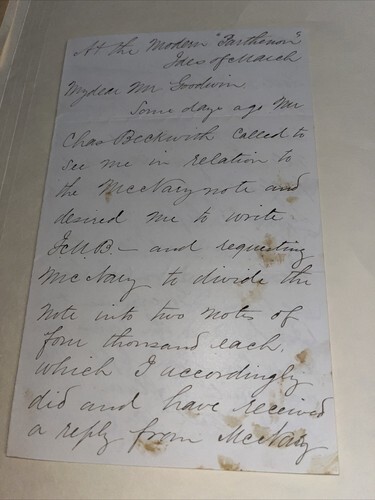 At the Modern "Parthenon"
Ides of March
My dear Mr Goodwin
Some days ago Mr
Chas Beckwith called to
see me in relation to
the McNary note and
desired me to write
— and requesting
McNary to divide the
note into two notes of
four thousand each,
which I accordingly
did and have received
a reply from McNary